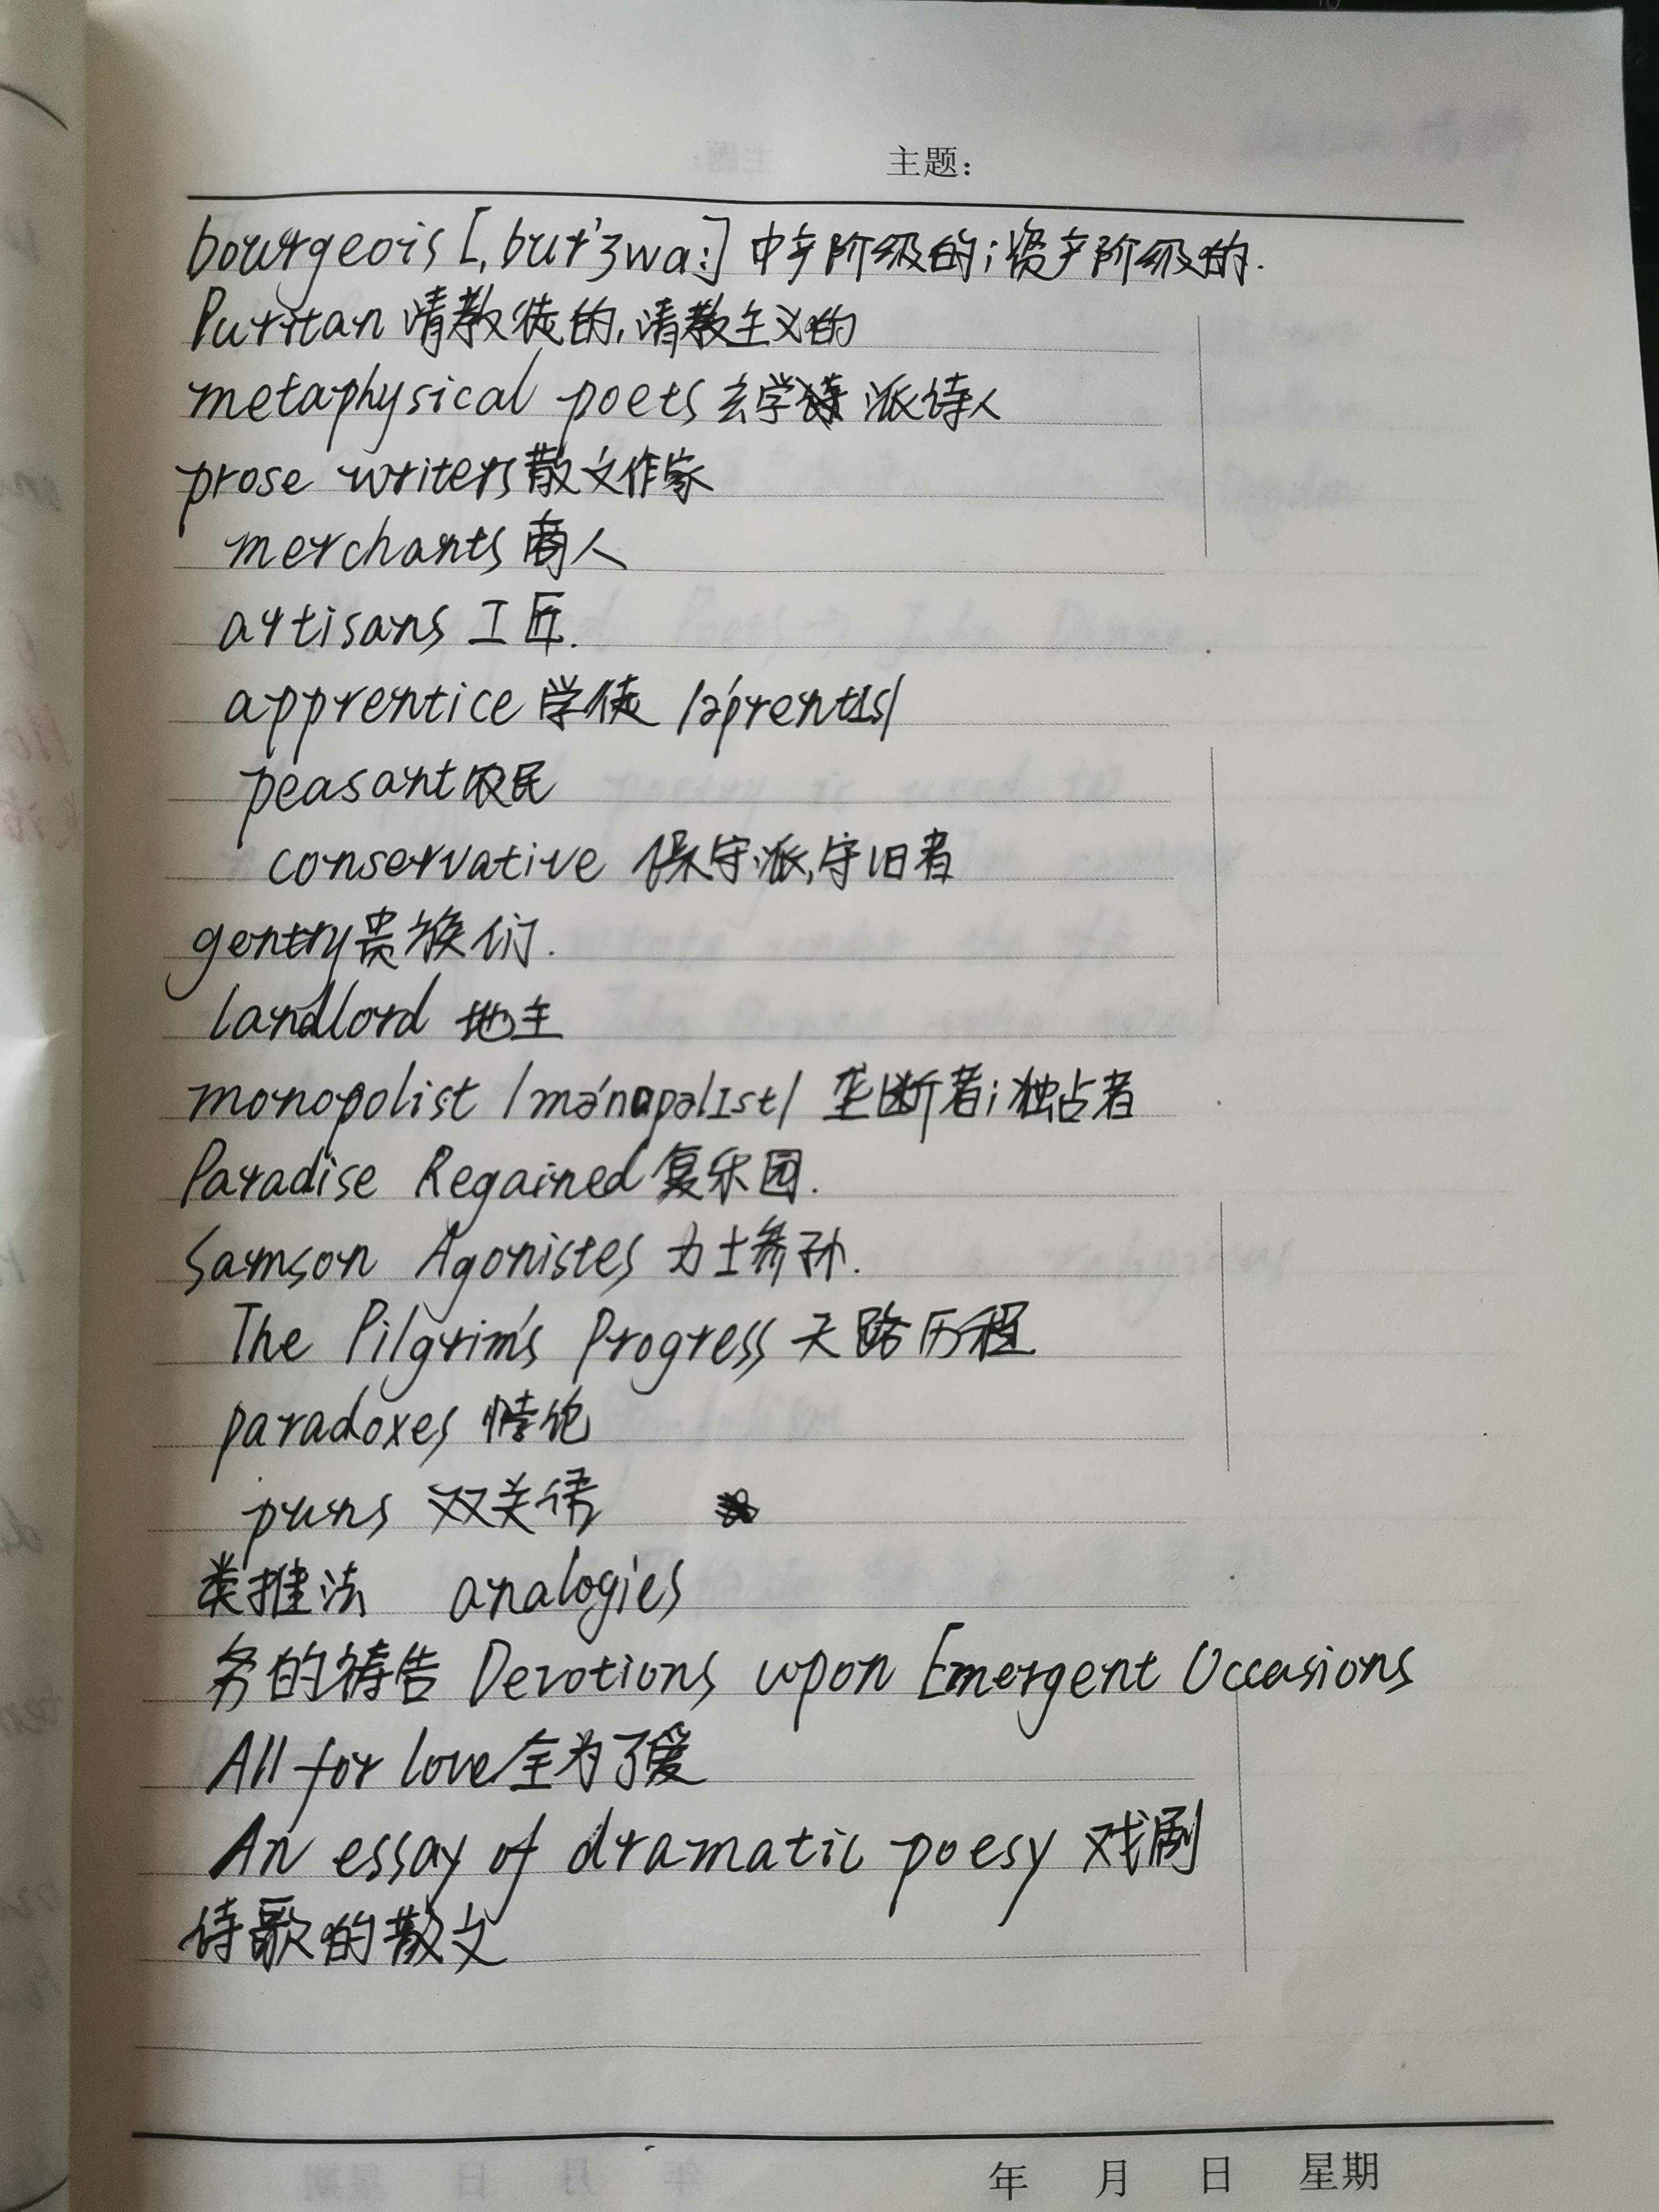 主题:
bourgeois [ˌbʊrˈʒwɑː] 中产阶级的;资产阶级的.
Puritan 清教徒的,清教主义的
metaphysical poets 玄学派诗人
prose writers 散文作家
merchants 商人
artisans 工匠.
apprentice 学徒 /əˈprentɪs/
peasant 农民
conservative 保守派,守旧者
gentry 贵族们.
landlord 地主
monopolist /məˈnɒpəlɪst/ 垄断者;独占者
Paradise Regained 复乐园.
Samson Agonistes 力士参孙.
The Pilgrim's Progress 天路历程
paradoxes 悖饱
puns 双关语
类推法 analogies
务的祷告 Devotions upon Emergent Occasions
All for love 全为了爱
An essay of dramatic poesy 戏剧
诗歌的散文
年 月 日 星期